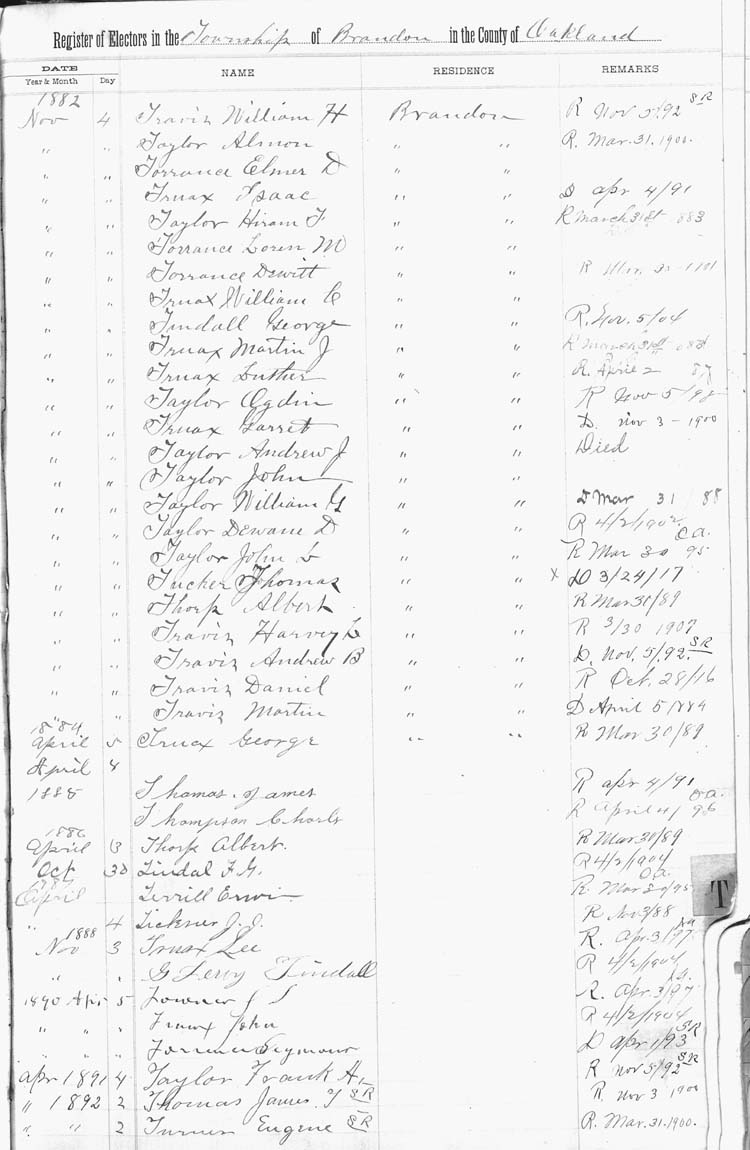 Register of Electors in the Township of Brandon in the County of Oakland
DATE NAME RESIDENCE REMARKS
Year & Month Day
1882
Nov 4 Travis William H Brandon R Nov 5/92 SR
" " Taylor Almon " " R. Mar. 31. 1900.
" " Torrance Elmer D " "
" " Truax Isaac " " D apr 4/91
" " Taylor Hiram T " " R March 31st 883
" " Torrance Loren M " "
" " Torrance Dewitt " " R Mar.
" " Truax William C " "
" " Tindall George " " R. Nov. 5/04
" " Truax Martin J " " R March 31st
" " Truax Luther " " R. April 2 87
" " Taylor Ogdin " " R Nov 5/98
" " Truax Garret " " D. Nov 3 - 1900
" " Taylor Andrew J " " Died
" " Taylor John " "
" " Taylor William G " " D Mar 31 / 88
" " Taylor Dewane D " " R 4/2/1902
" " Taylor John L " " R Mar 30 95 C.a.
" " Tucker Thomas " " x D 3/24/17
" " Thorp Albert " " R Mar 30/89
" " Travis Harvey L " " R 3/30 1907
" " Travis Andrew B " " D. Nov. 5/92. SR
" " Travis Daniel " " R Oct. 28/16
" " Travis Martin " " D April 5 1884
1884
April 5 Truax George " " R Mar 30/89
April 4
1885 Thomas James R apr 4/91
Thompson Charls R April 4/96 C.a.
1886
April 3 Thorp Albert. R Mar 30/89
Oct 30 Tindal F. G. R 4/2/1904
April Terrill Erwin R. Mar 30/95 C.a.
" 4 Tickner J. J. R Nov 3/88
1888
Nov 3 Truax Lee R. Apr. 3/97
" " G Leroy Tindall R 4/2/1904
1890 Apr 5 Towner J S R. Apr. 3/97
" " " Truax John R 4/2/1904
" " " Torrence Seymour D apr 1/93 SR
apr 1891 4 Taylor Frank H. R Nov 5/92 SR
" 1892 2 Thomas James T SR R Nov 3 1900
" " 2 Turner Eugene SR R. Mar. 31. 1900.
T